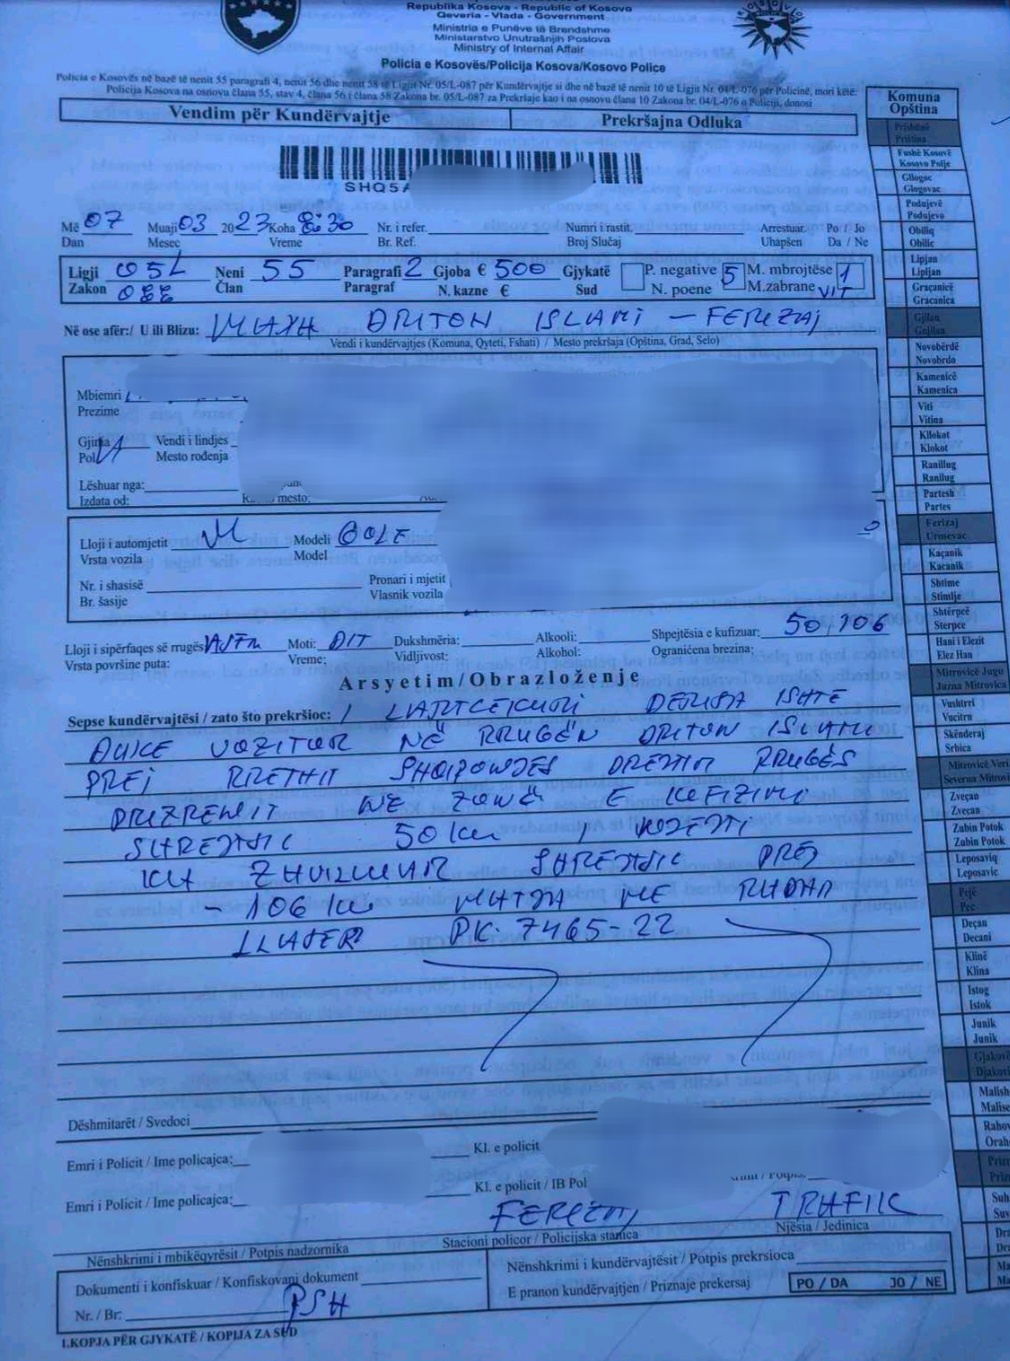 Republika Kosova - Republic of Kosovo
Qeveria - Vlada - Government
Ministria e Punëve të Brendshme
Ministarstvo Unutrašnjih Poslova
Ministry of Internal Affair
Policia e Kosovës/Policija Kosova/Kosovo Police
Policia e Kosovës në bazë të nenit 55 paragrafi 4, nenit 56 dhe nenit 58 të Ligjit Nr. 05/L-087 për Kundërvajtje si dhe në bazë të nenit 10 të Ligjit Nr. 04/L-076 për Policinë, mori këtë:
Policija Kosova na osnovu člana 55, stav 4, člana 56 i člana 58 Zakona br. 05/L-087 za Prekršaje kao i na osnovu člana 10 Zakona br. 04/L-076 o Policiji, donosi
Vendim për Kundërvajtje Prekršajna Odluka
SHQ5A
Më 07 Muaji 03 2023 Koha 8:30 Nr. i refer. Numri i rastit. Arrestuar. Po / Jo
Dan Mesec Vreme Br. Ref. Broj Slučaj Uhapšen Da / Ne
Ligji 05L Neni 55 Paragrafi 2 Gjoba € 500 Gjykatë P. negative 5 M. mbrojtëse 1
Zakon 088 Član Paragraf N. kazne € Sud N. poene M.zabrane VIT
Në ose afër:/ U ili Blizu: MAXH DRITON ISLAMI - FERIZAJ
Vendi i kundërvajtjes (Komuna, Qyteti, Fshati) / Mesto prekršaja (Opština, Grad, Selo)
Mbiemri
Prezime
Gjinia M Vendi i lindjes
Pol Mesto rođenja
Lëshuar nga:
Izdata od: mesto:
Lloji i automjetit M Modeli GOLF
Vrsta vozila Model
Nr. i shasisë Pronari i mjetit
Br. šasije Vlasnik vozila
Lloji i sipërfaqes së rrugës ASFA Moti: DIT Dukshmëria: Alkooli: Shpejtësia e kufizuar: 50, 106
Vrsta površine puta: Vreme: Vidljivost: Alkohol: Ograničena brezina:
Arsyetim/Obrazloženje
Sepse kundërvajtësi / zato što prekršioc: I LARTCEKURI DERISA ISHTE
DUKE VOZITUR NË RRUGËN DRITON ISLAMI
PREJ RRETHIT SHQIPONJES DREJTIM RRUGËS
PRIZRENIT NE ZONË E KUFIZIMI
SHPEJTSIC 50 Km, I NJEJTI
KA ZHVILLUAR SHPEJTSIC PREJ
- 106 Km MATJA ME RADAR
LLASER PK. 7465-22
Dëshmitarët / Svedoci
Emri i Policit / Ime policajca: Kl. e policit
Emri i Policit / Ime policajca: Kl. e policit / IB Pol
FERIZAJ TRAFIK
Nënshkrimi i mbikëqyrësit / Potpis nadzornika Stacioni policor / Policijska stanica Njësia / Jedinica
Dokumenti i konfiskuar / Konfiskovani dokument Nënshkrimi i kundërvajtësit / Potpis prekrsioca
Nr. / Br: PSH E pranon kundërvajtjen / Priznaje prekersaj PO / DA JO / NE
1.KOPJA PËR GJYKATË / KOPIJA ZA SUD
Komuna
Opština
Prishtinë
Priština
Fushë Kosovë
Kosovo Polje
Gllogoc
Glogovac
Podujevë
Podujevo
Obiliq
Obilic
Lipjan
Lipljan
Graçanicë
Gracanica
Gjilan
Gnjilan
Novobërdë
Novobrdo
Kamenicë
Kamenica
Viti
Vitina
Kllokot
Klokot
Ranillug
Ranilug
Partesh
Partes
Ferizaj
Urosevac
Kaçanik
Kacanik
Shtime
Stimlje
Shtërpcë
Sterpce
Hani i Elezit
Elez Han
Mitrovicë Jugu
Juzna Mitrovica
Vushtrri
Vucitrn
Skënderaj
Srbica
Mitrovicë Veri
Severna Mitrovi
Zveçan
Zvecan
Zubin Potok
Zubin Potok
Leposaviq
Leposavic
Pejë
Pec
Deçan
Decani
Klinë
Klina
Istog
Istok
Junik
Junik
Gjakov
Djakov
Malish
Malise
Rahov
Orah
Priz
Priz
Suh
Suv